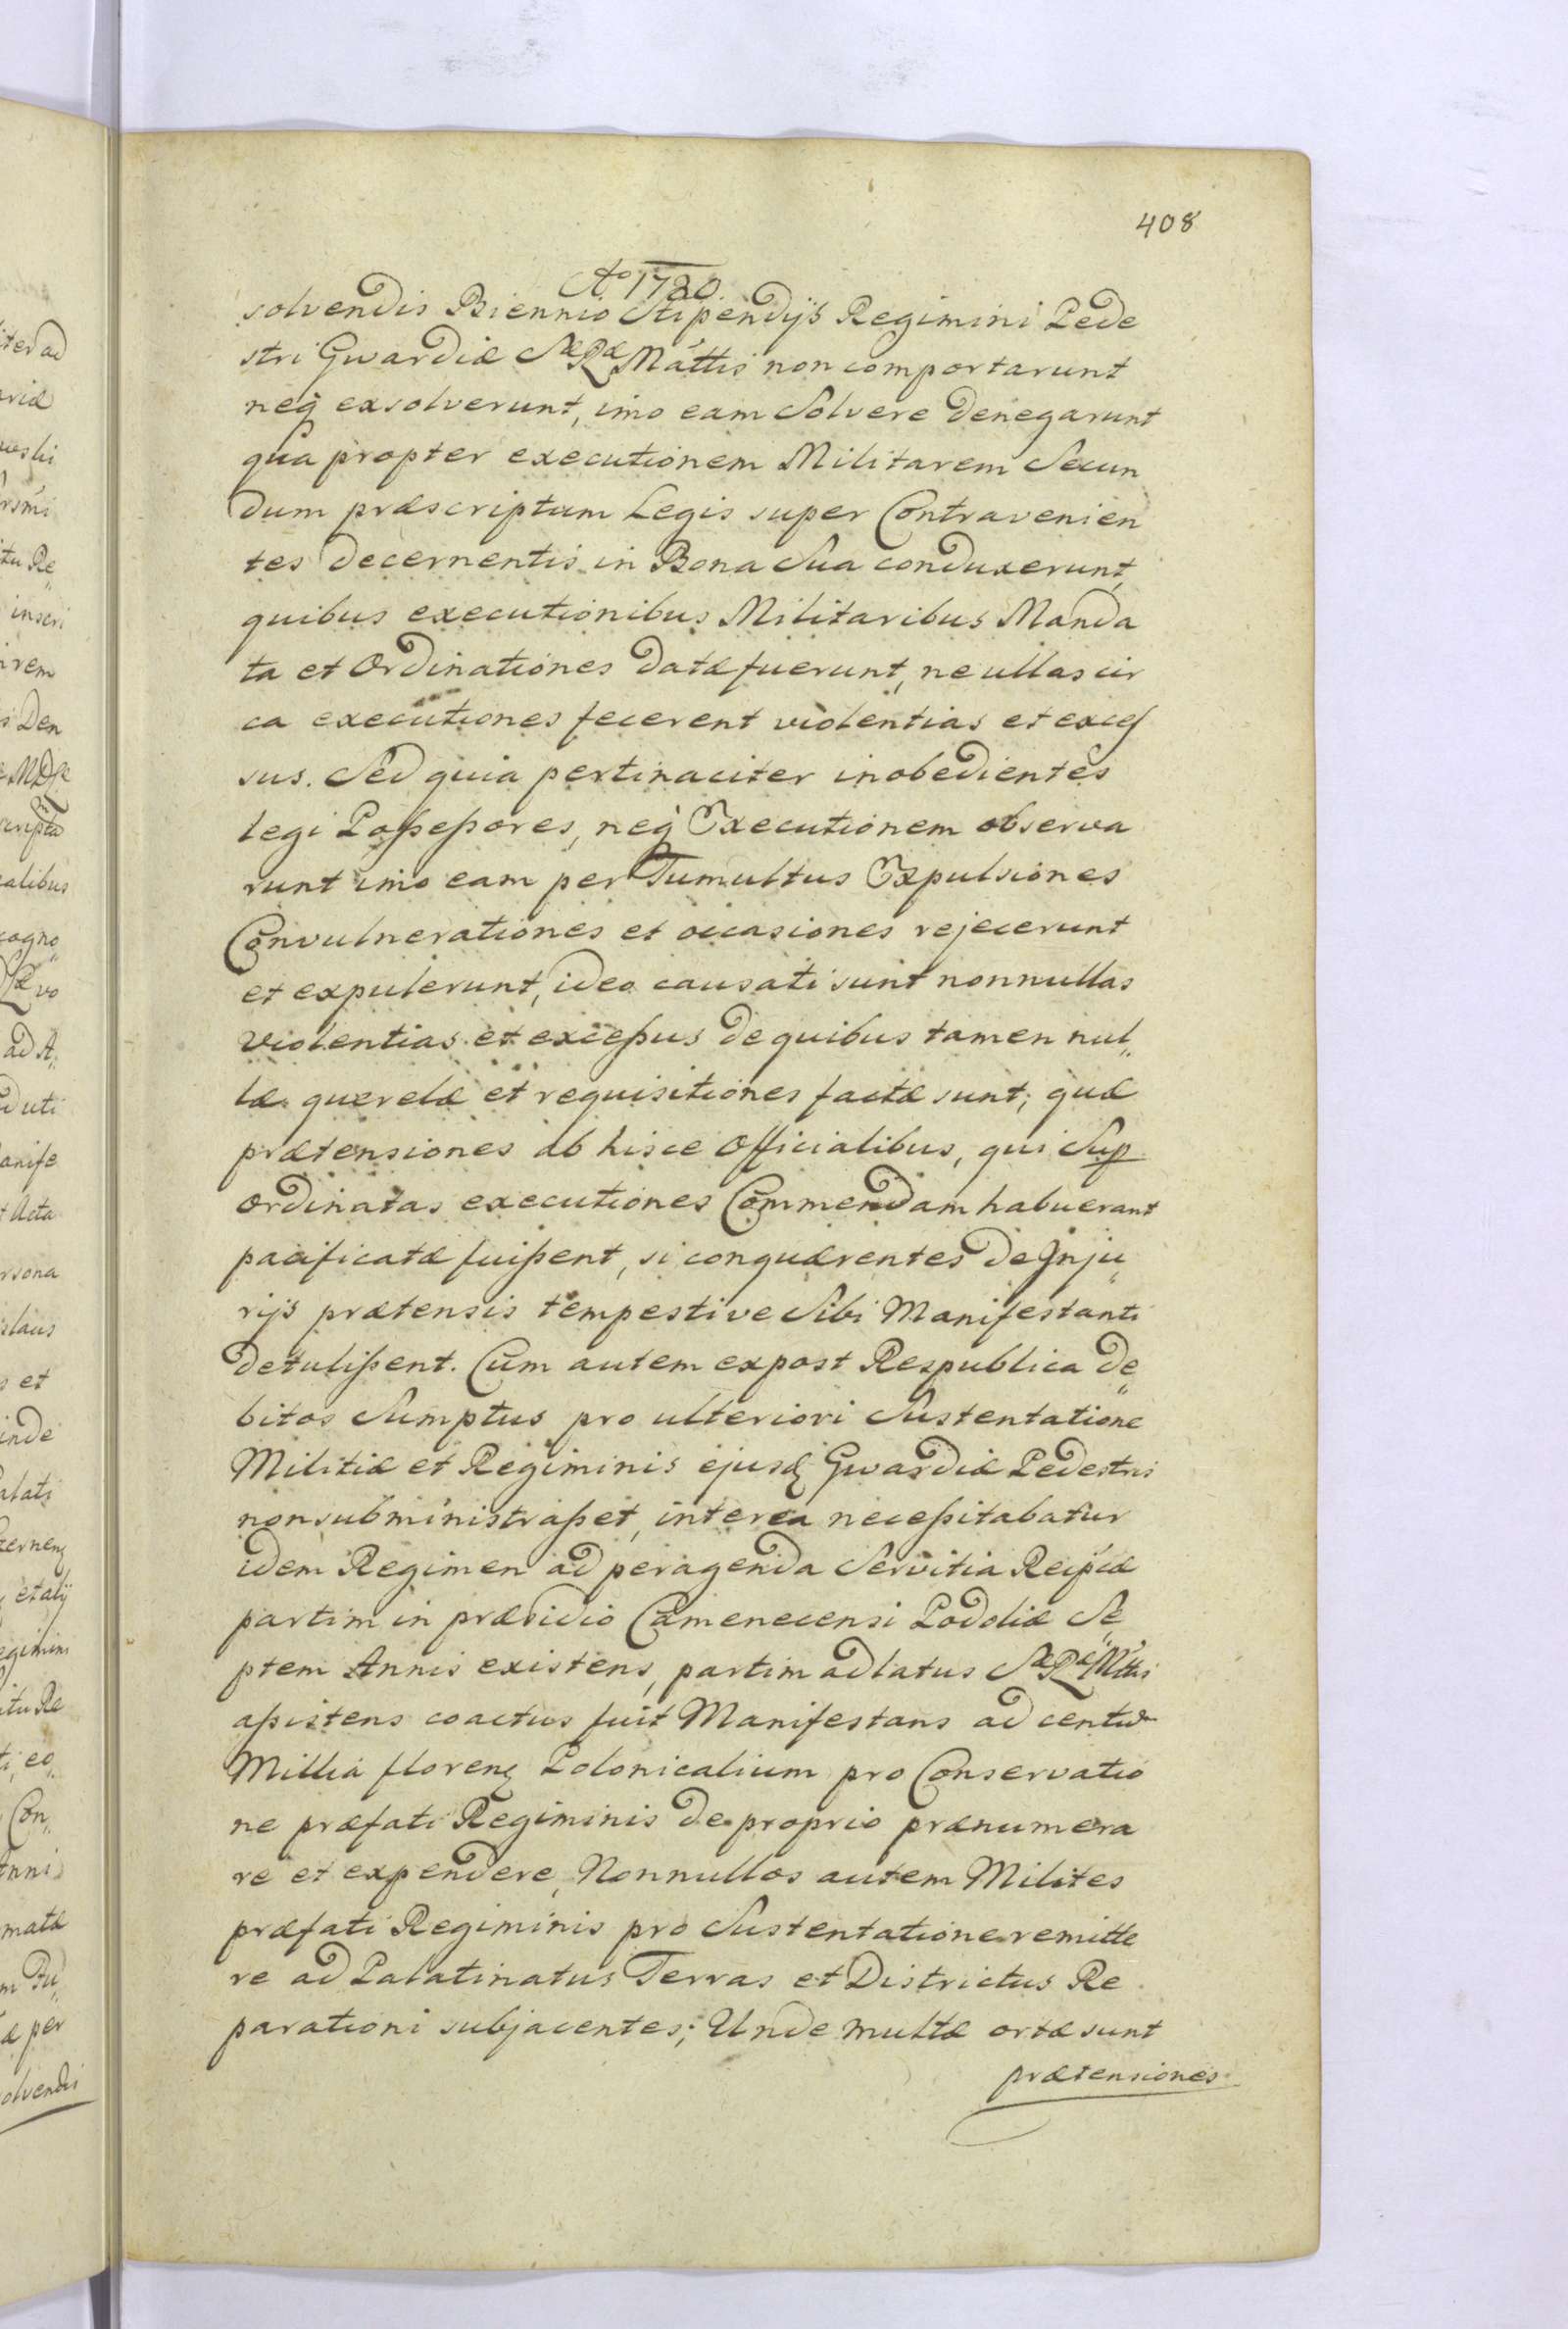 408
Ao 1730.
solvendis Biennio Stipendijs Regimini Pede
stri Gwardiæ Sæ Ræ Mattis non comportarunt
neq̃ exsolverunt, imo eam Solvere denegarunt
qua propter executionem Militarem Secun
dum præscriptum Legis super Contravenien
tes decernentis in Bona Sua conduxerunt,
quibus executionibus Militaribus Manda
ta et Ordinationes datæ fuerunt, ne ullas cir
ca executiones fecerent violentias et exces
sus. Sed quia pertinaciter inobedientes
legi Poßeßores, neq̃ Executionem observa
runt imo eam per Tumultus Expulsiones
Convulnerationes et occasiones rejecerunt
et expulerunt, ideo causati sunt nonnullas
violentias et exceßus de quibus tamen nul„
læ querelæ et requisitiones factæ sunt; quæ
prætensiones ab hisce Officialibus, qui Sup
ordinatas executiones Commendam habuerant
pacificatæ fuißent, si conquærentes de Inju„
rijs prætensis tempestive Sibi Manifestanti
detulißent. Cum autem expost Respublica de„
bitos Sumptus pro ulteriori Sustentatione
Militiæ et Regiminis ejusq Gwardiæ Pedestris
non subministraßet, interea neceßitabatur
idem Regimen ad peragenda Servitia Reipcæ
partim in præsidio Camenecensi Podoliæ Se„
ptem Annis existens, partim ad latus Sæ Ræ Mttis
aßistens coactus fuit Manifestans ad centum
Millia floren Polonicalium pro Conservatio
ne præfati Regiminis de proprio prænumera
re et expendere, Nonnullos autem Milites
præfati Regiminis pro Sustentatione remitte
re ad Palatinatus Terras et Districtus Re
parationi subjacentes; Unde multæ ortæ sunt
prætensiones